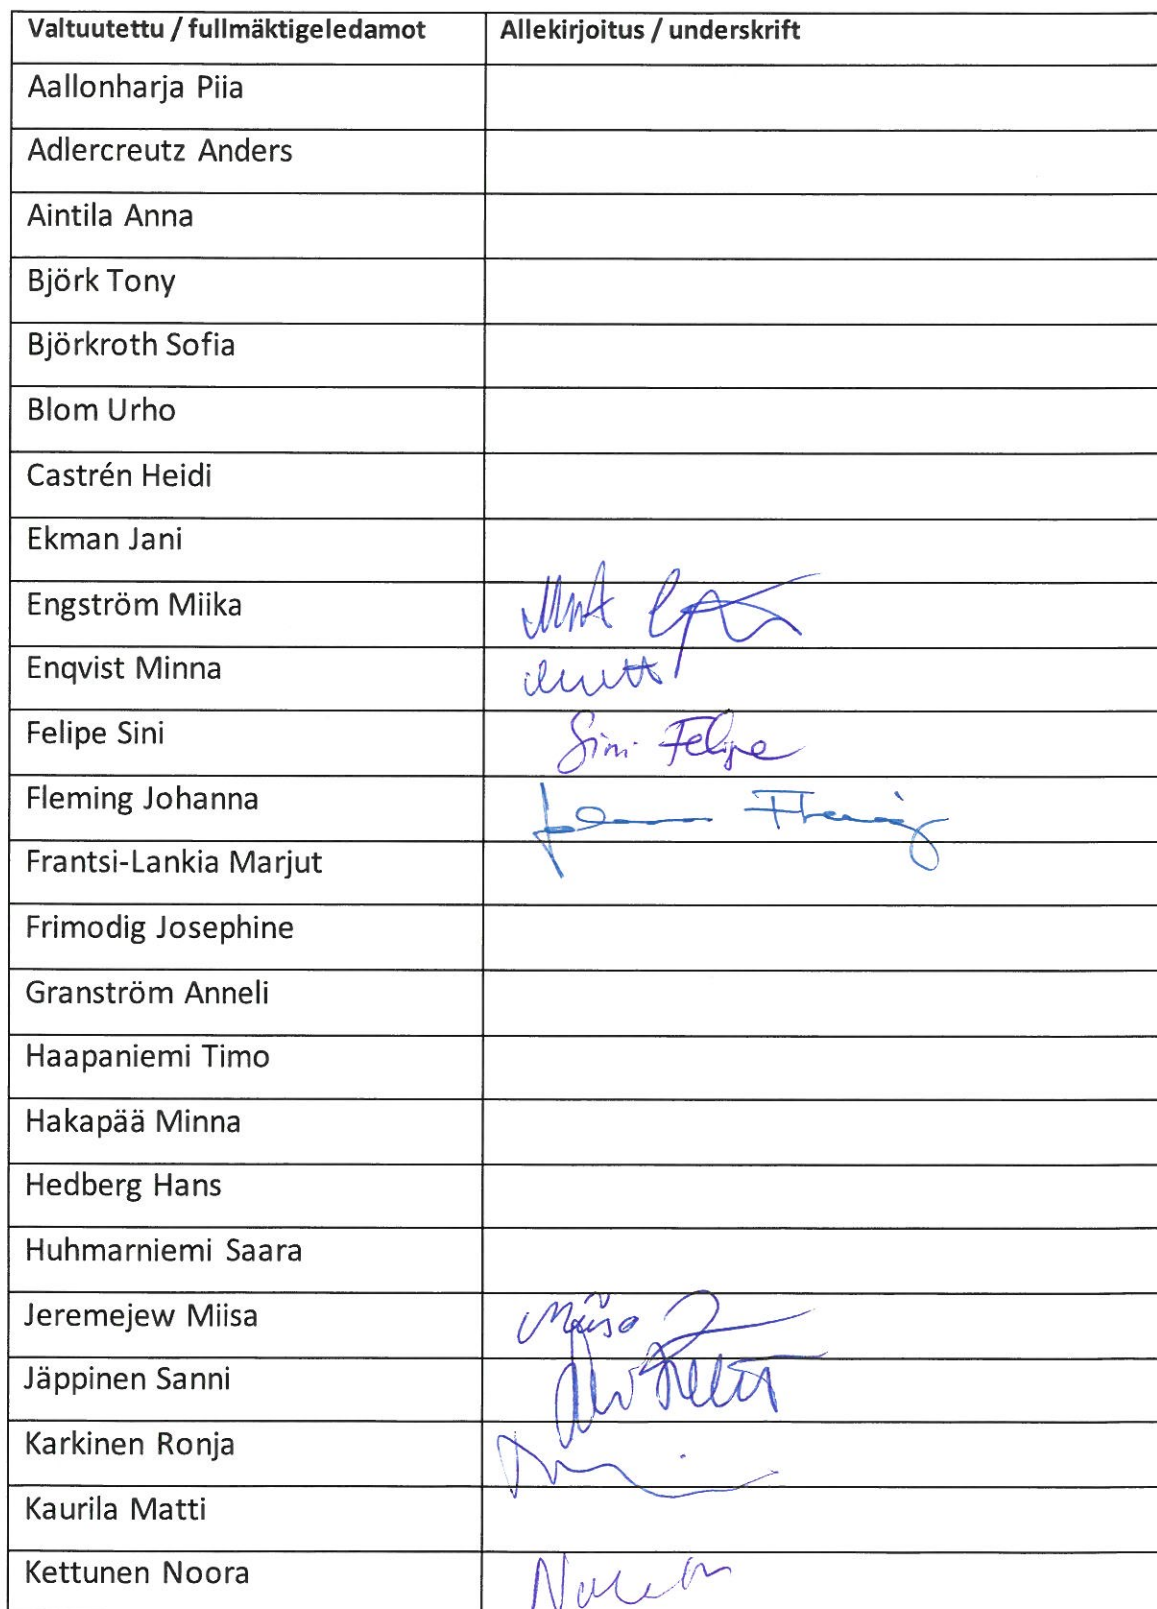 Valtuutettu / fullmäktigeledamot Allekirjoitus / underskrift
Aallonharja Piia
Adlercreutz Anders
Aintila Anna
Björk Tony
Björkroth Sofia
Blom Urho
Castrén Heidi
Ekman Jani
Engström Miika
Enqvist Minna
Felipe Sini Sini Felipe
Fleming Johanna
Frantsi-Lankia Marjut
Frimodig Josephine
Granström Anneli
Haapaniemi Timo
Hakapää Minna
Hedberg Hans
Huhmarniemi Saara
Jeremejew Miisa Miisa
Jäppinen Sanni
Karkinen Ronja
Kaurila Matti
Kettunen Noora